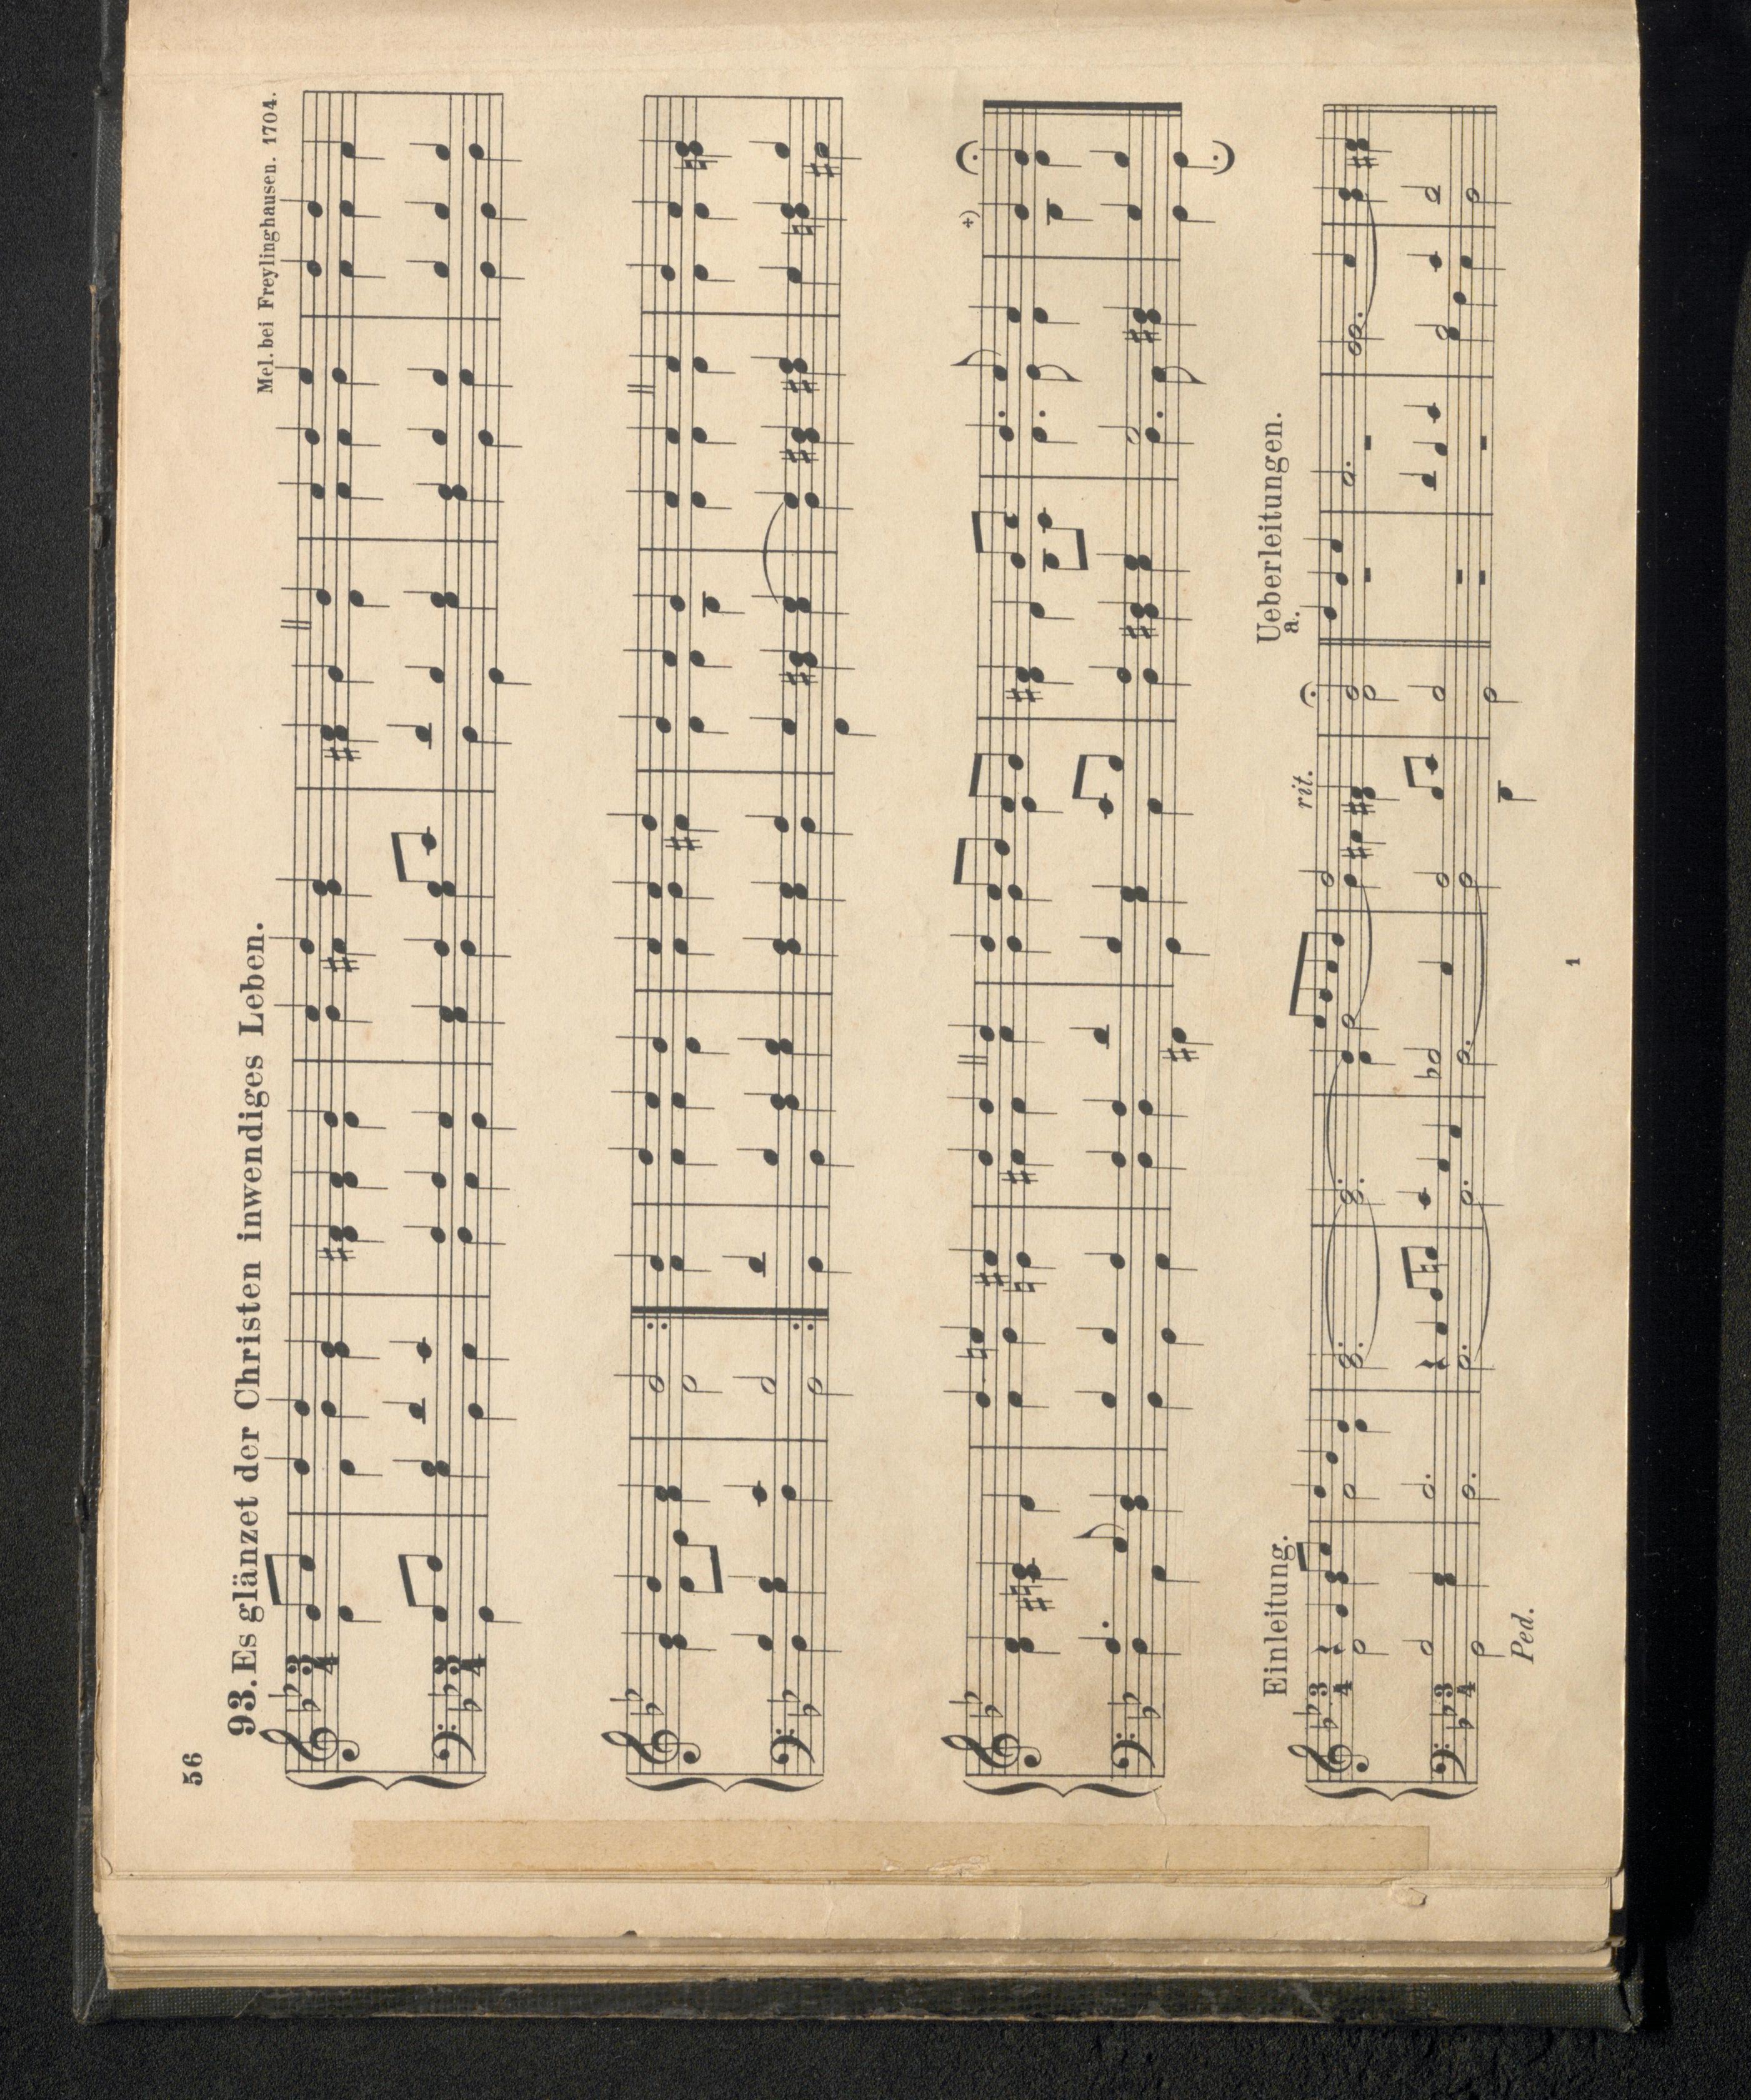 56
93. Es glänzet der Christen inwendiges Leben.
Mel. bei Freylinghausen. 1704.
+)
Einleitung.
rit.
Ueberleitungen.
a.
Ped.
1